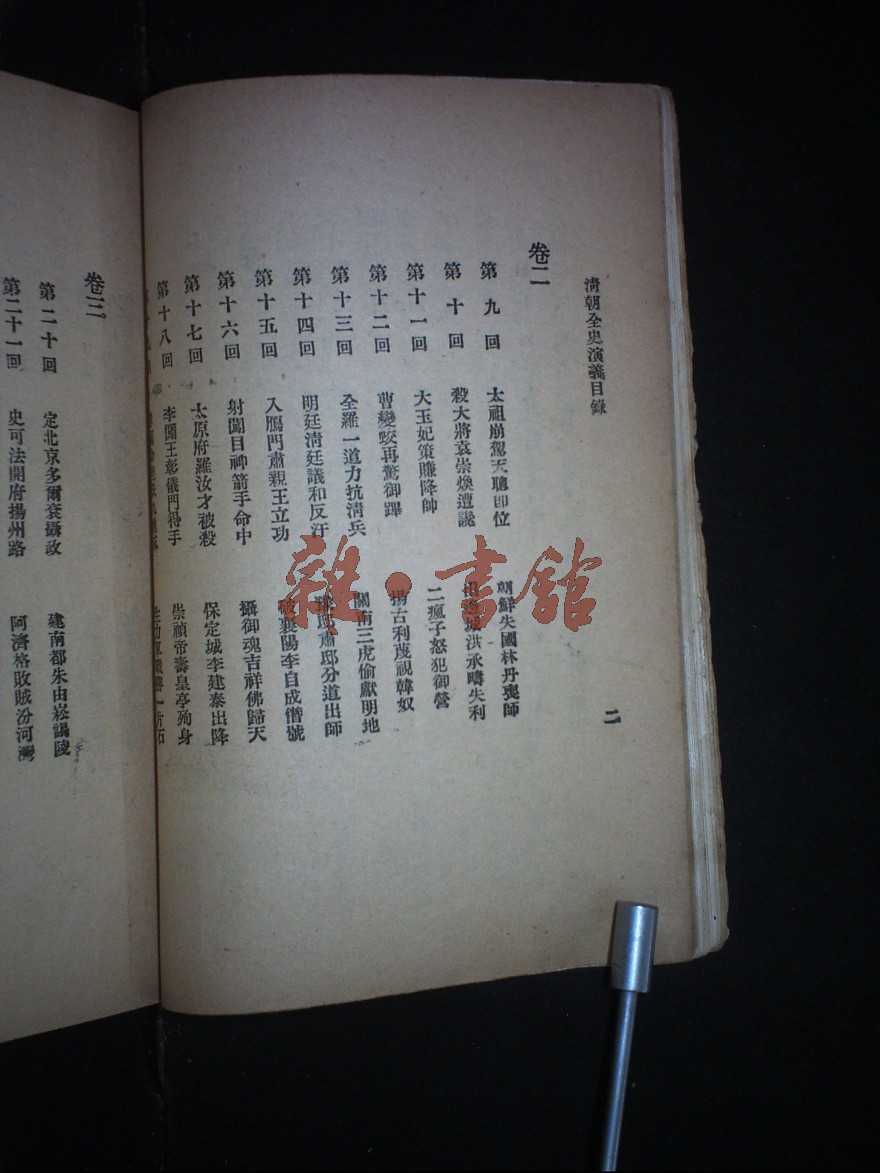 清朝全史演義目錄
二
卷二
第九回 太祖崩駕天聰即位 朝鮮失國林丹喪師
第十回 殺大將袁崇煥遭讒 洪承疇失利
第十一回 大玉妃策賺降帥 二瘋子怒犯御營
第十二回 曹變蛟再驚御蹕 揚古利蔑視韓奴
第十三回 全羅一道力抗清兵 關南三虎偷獻明地
第十四回 明廷清廷議和反汙 肅邸分道出師
第十五回 入鴈門肅親王立功 破襄陽李自成僭號
第十六回 射闖目神箭手命中 攝御魂吉祥佛歸天
第十七回 太原府羅汝才被殺 保定城李建泰出降
第十八回 李闖王彰儀門得手 崇禎帝壽皇亭殉身
卷三
第二十回 定北京多爾袞攝政 建南都朱由崧謁陵
第二十一回 史可法開府揚州路 阿濟格敗賊汾河灣
雜·書館